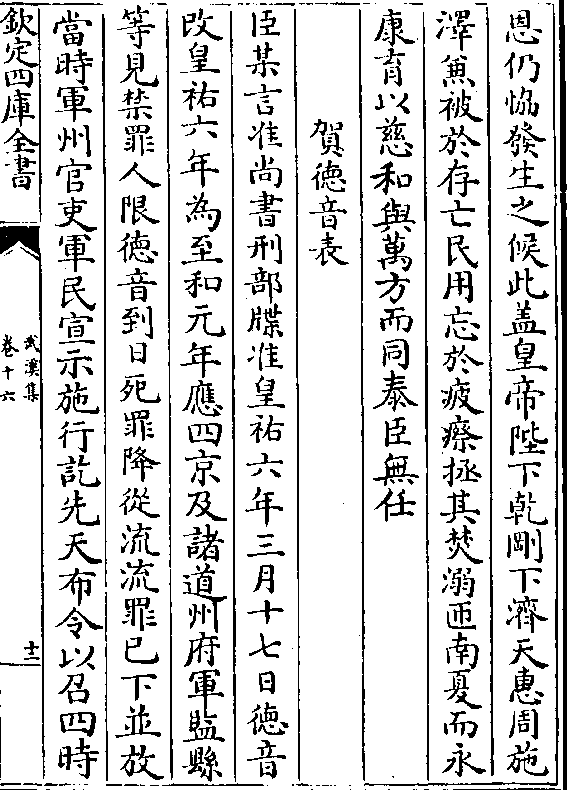 恩仍恊發生之候此盖皇帝陛下乾剛下濟天惠周施
澤兼被於存亡民用忘於疲瘵拯其焚溺匝南夏而永
康育以慈和與萬方而同泰臣無任
賀德音表
臣某言准尚書刑部牒准皇祐六年三月十七日德音
改皇祐六年為至和元年應四京及諸道州府軍監縣
等見禁罪人限德音到日死罪降從流流罪已下並放
當時軍州官吏軍民宣示施行訖先天布令以召四時
欽定四庫全書
武溪集
卷十六
十二